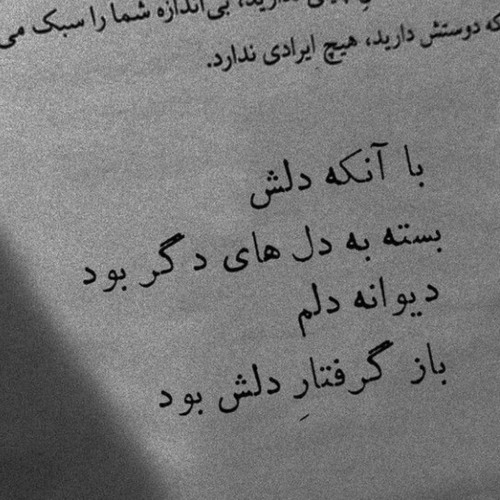 بی‌اندازه شما را سبک می
که دوستش دارید، هیچ ایرادی ندارد.
با آنکه دلش
بسته به دل های دگر بود
دیوانه دلم
باز گرفتارِ دلش بود